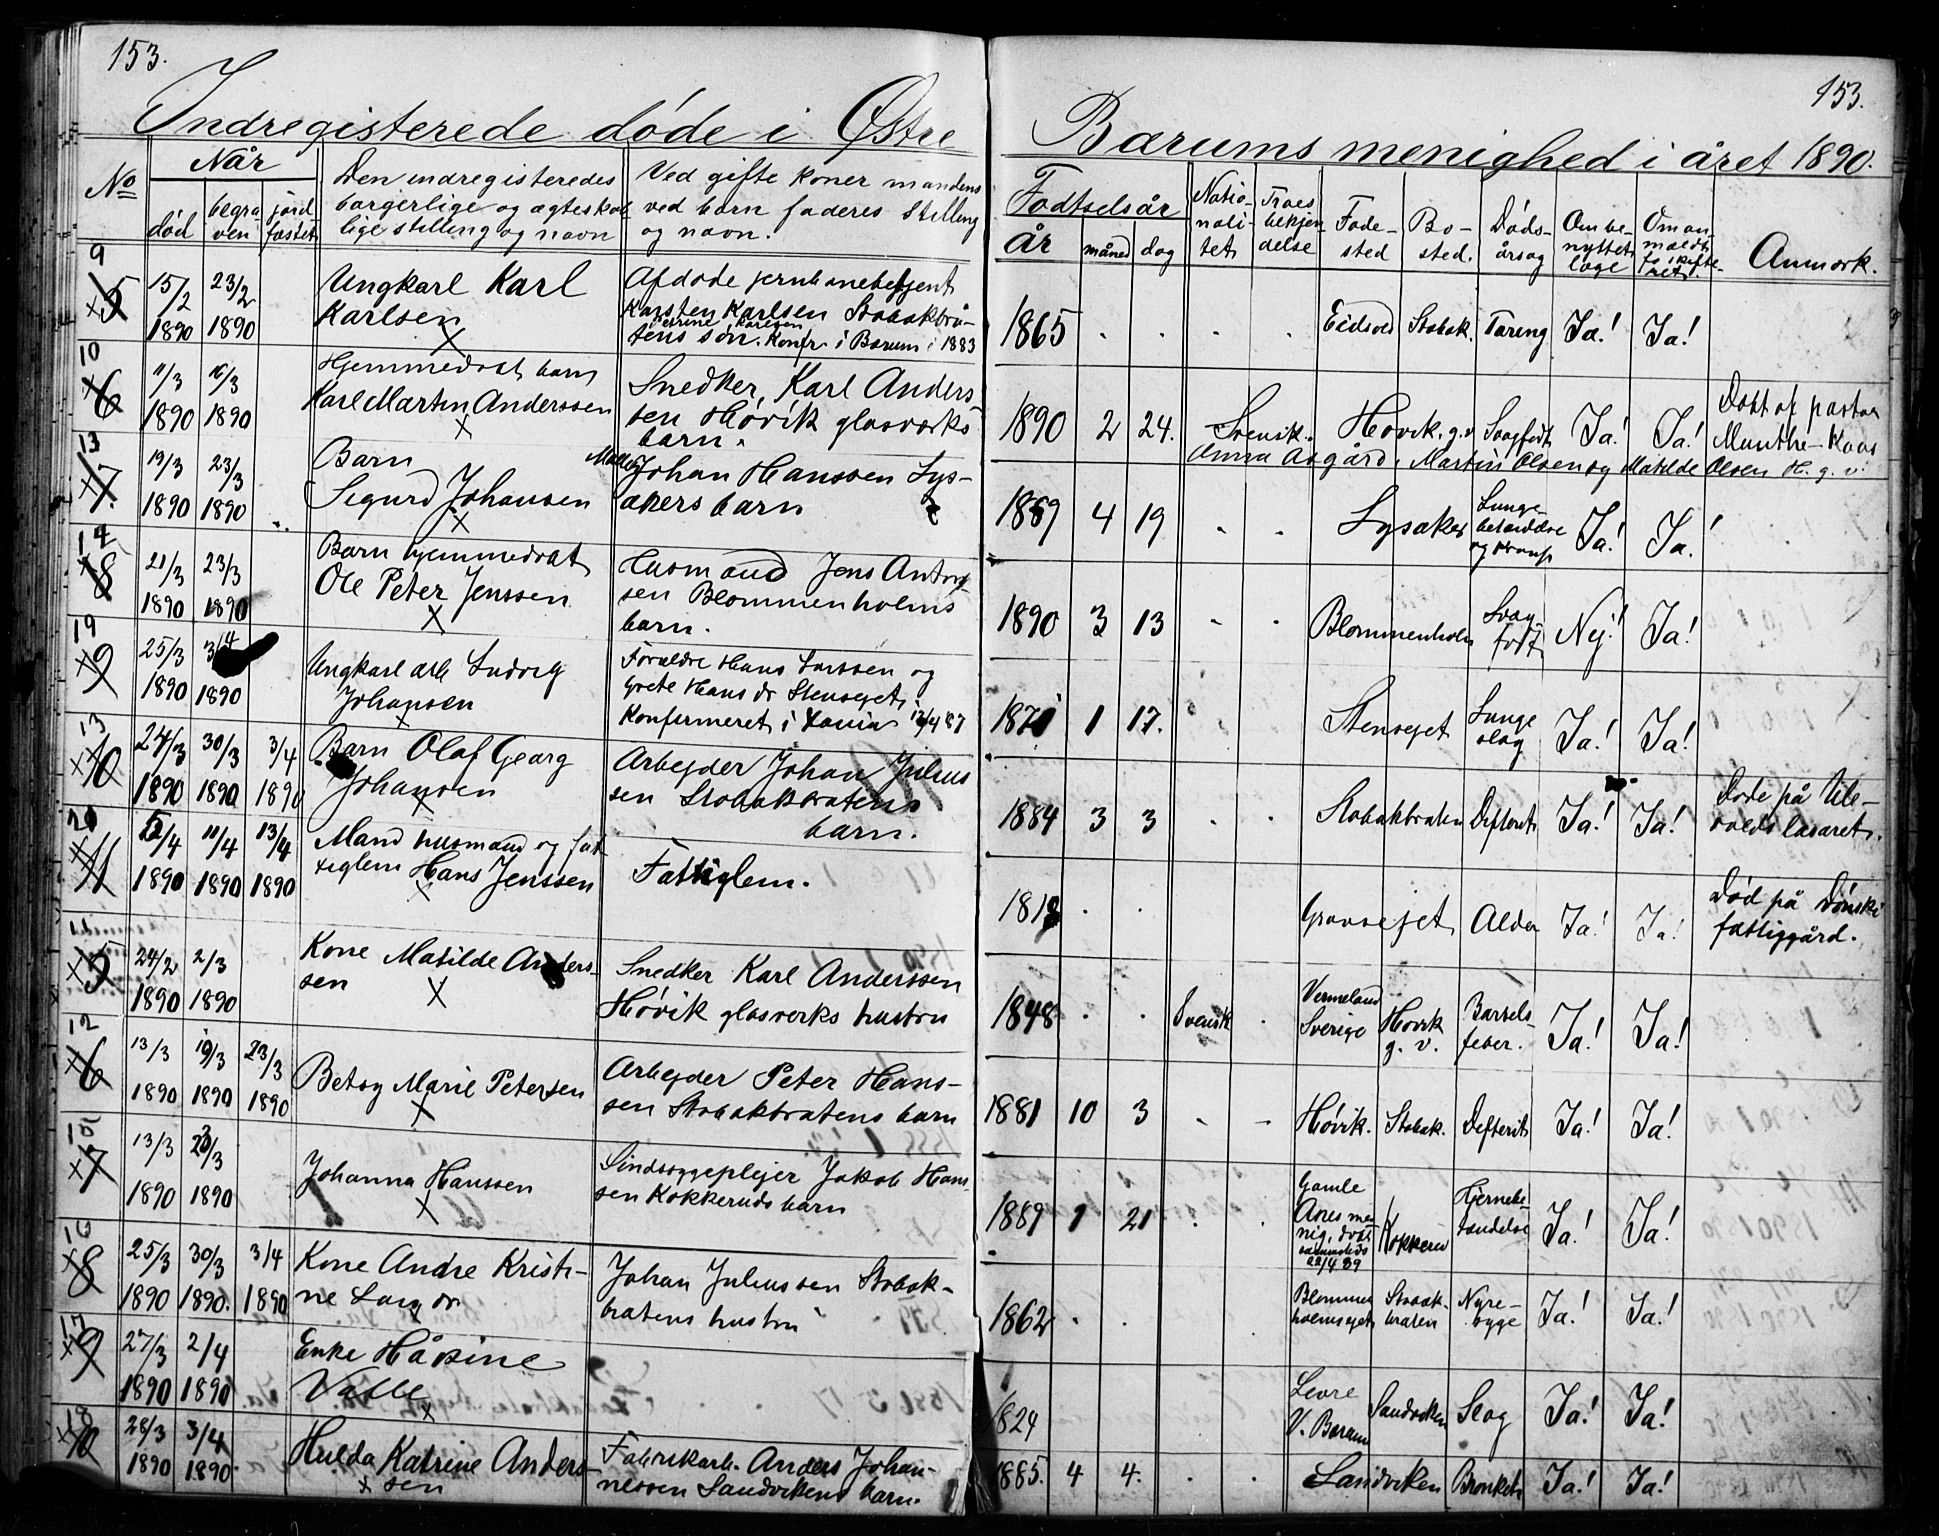 153.
153.
Indregisterede døde i Østre Bærums menighed i året 1890.
No
Når
død
begra-
ven
jord-
fæstet
Den indregisteredes
borgerlige og ægteskab
lige stilling og navn
Ved gifte koner mandens
ved børn faderes stilling
og navn.
Fødselsår
år
måned
dag
Natio-
nali-
tet
Troes
bekjen
delse
Føde-
sted
Bo-
sted.
Døds-
årsag
Om be-
nyttet
læge
Om an-
meldt
Anmærk.
9
5
15/2 1890
23/2 1890
Ungkarl Karl
Karlsen
Afdøde jernbanebetjent
Karsten Karlsen Stabækbrå-
tens søn. Konfr. i Bærum i 1883
1865
Eidsvold
Stabæk.
Tæring
Ja!
Ja!
10
6
11/3 1890
16/3 1890
Hjemmedøbt barn
Karl Martin Anderssen
Snedker, Karl Anders
sen Høvik glasværks
barn.
1890
2
24.
Svensk.
Høvik. g.v
Svagfødt
Ja!
Ja!
Døbt af pastor
Munthe-Kaas
Anna Asgård, Martin Olsen og Matilde Olsen H. g. v.
13
7.
19/3 1890
23/3 1890
Barn
Sigurd Johansen
Johan Hanssen Lys-
akers barn
1889
4
19
Lysaker
Lunge-
Ja!
Ja!
14
8
21/3 1890
23/3 1890
Barn hjemmedøbt
Ole Peter Jenssen
Husmand Jens Anton
sen Blommenholms
barn.
1890
3
13
Blommenholm
Svag
født
Nej!
Ja!
19
9
25/3 1890
3/4 1890
Ungkarl arb Ludvig
Johansen
Forældre Hans Larssen og
Grete Hans dr Stenseget
Konfirmeret i Xania 12/4 87
1871
1
17.
Stenseget
Lunge
slag
Ja!
Ja!
13
10
24/3 1890
30/3 1890
3/4 1890
Barn Olaf Georg
Johansen
Arbejder Johan Julius
sen Stabækbråtens
barn.
1884
3
3
Stabækbråten
Difterit
Ja!
Ja!
Døde på Ule-
volds lasaret.
20
11
12/4 1890
11/4 1890
13/4 1890
Mand husmand og fat-
tiglem Hans Jenssen
Fattiglem.
1818
Gravsejet
Alder
Ja!
Ja!
Død på Dønski
fattiggård.
11
5
24/2 1890
2/3 1890
Kone Matilde Anders-
sen
Snedker Karl Anderssen
Høvik glasverks hustru
1848
Svensk
Vermeland
Sverige
Høvik
g. v.
Barsels-
feber.
Ja!
Ja!
12
6
13/3 1890
19/3 1890
23/3 1890
Betsy Marie Petersen
Arbejder Peter Hans-
sen Stabækbråtens barn
1881
10
3
Høvik.
Stabæk.
Difterit
Ja!
Ja!
7
13/3 1890
23/3 1890
Johanna Hanssen
Sindssygeplejer Jakob Hans-
sen Kokkeruds barn
1889
1
21
Gamle
Akers me-
nig. døbt
sammesteds
22/4 89
Kokkerud
Hjernebe-
tændelse
Ja!
Ja!
16
8
25/3 1890
30/3 1890.
3/4 1890
Kone Andre Kristi-
ne Lars dr
Johan Juliussen Stabæk-
bråtens hustru
1862
Blommen
holmseget
Stabæk-
bråten
Nyre-
syge
Ja!
Ja!
17
9
27/3 1890
2/4 1890
Enke Håsine
Valle
1824
Levre
V. Bærum
Sandviken
Slag
Ja!
Ja!
18
10
28/3 1890
3/4 1890
Hulda Katrine Anders-
sen
Fabrikarb. Anders Johan-
nessen Sandvikens barn.
1885.
4
4.
Sandviken
Bronkit
Ja!
Ja!